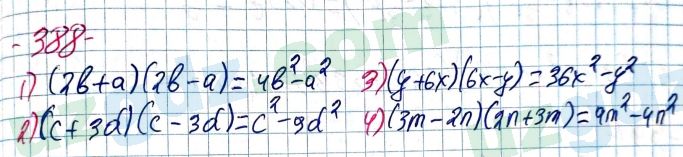 -388-
1) (2b+a)(2b-a)=4b²-a² 3) (y+6x)(6x-y)=36x²-y²
2) (c+3d)(c-3d)=c²-9d² 4) (3m-2n)(2n+3m)=9m²-4n²